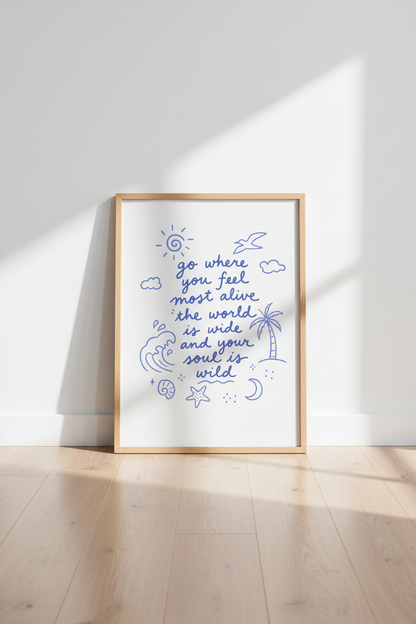 go where
you feel
most alive
the world
is wide
and your
soul is
wild